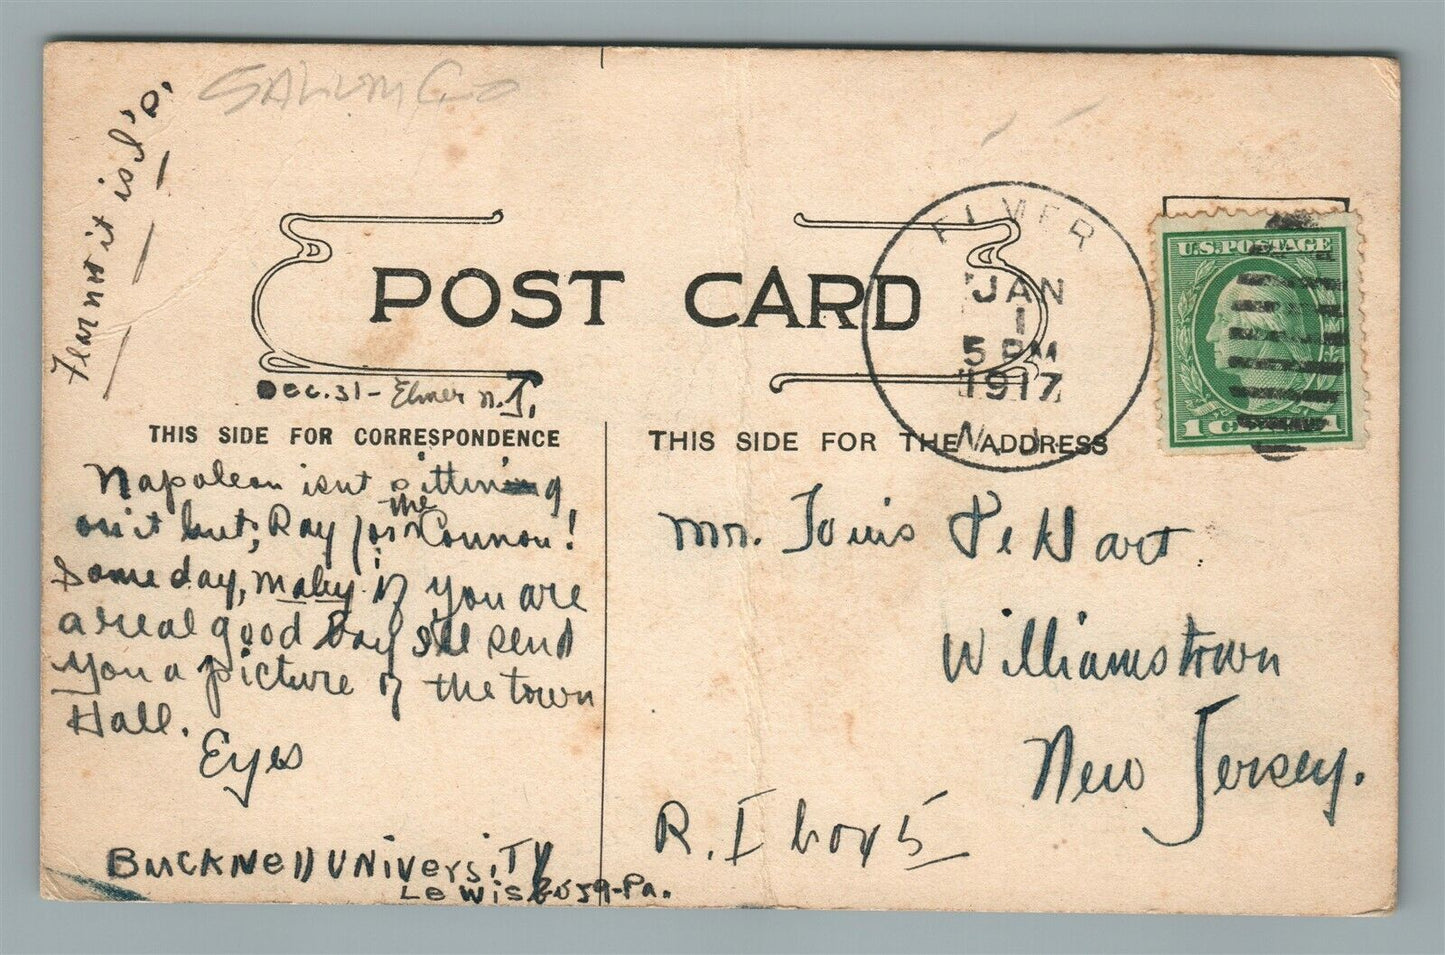 SALUM Co
Fear not it is I 'P.'
POST CARD
ELMER
JAN
1
5 PM
1917
N.J.
U.S. POSTAGE
1 CENT 1
Dec. 31 - Elmer N.J.
THIS SIDE FOR CORRESPONDENCE
THIS SIDE FOR THE ADDRESS
Napoleon isnt sitting
on it but; Ray for the Connon!
Some day, maby if you are
a real good Boy I'll send
you a picture of the town
Hall.
Eyes
Bucknell University
Lewisburg-Pa.
Mr. Louis DeHart.
Williamstown
New Jersey.
R. I box 5